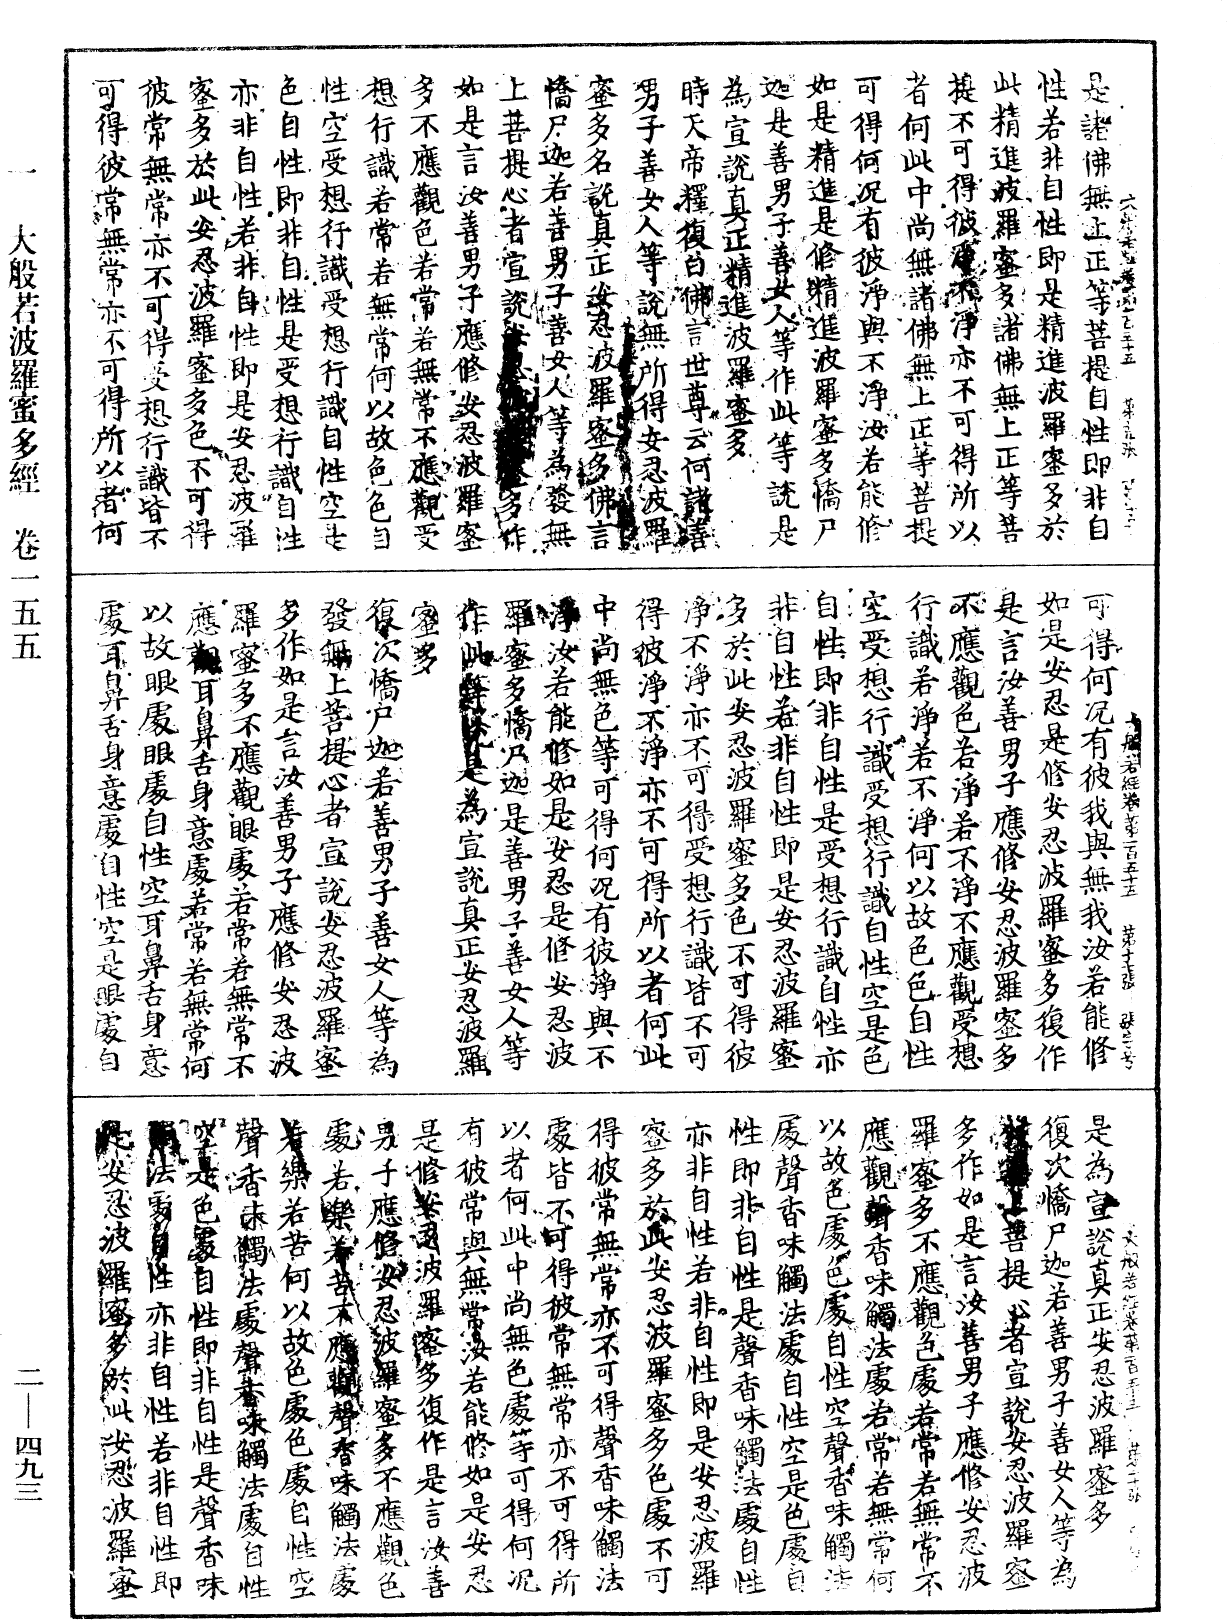 是諸佛無上正等菩提自性即非自
性若非自性即是精進波羅蜜多於
此精進波羅蜜多諸佛無上正等菩
提不可得彼淨不淨亦不可得所以
者何此中尚無諸佛無上正等菩提
可得何況有彼淨與不淨汝若能修
如是精進是修精進波羅蜜多憍尸
迦是善男子善女人等作此等說是
為宣說真正精進波羅蜜多
時天帝釋復白佛言世尊云何諸善
男子善女人等說無所得安忍波羅
蜜多名說真正安忍波羅蜜多佛言
憍尸迦若善男子善女人等為發無
上菩提心者宣說安忍波羅蜜多作
如是言汝善男子應修安忍波羅蜜
多不應觀色若常若無常不應觀受
想行識若常若無常何以故色色自
性空受想行識受想行識自性空是
色自性即非自性是受想行識自性
亦非自性若非自性即是安忍波羅
蜜多於此安忍波羅蜜多色不可得
彼常無常亦不可得受想行識皆不
可得彼常無常亦不可得所以者何
可得何況有彼我與無我汝若能修
如是安忍是修安忍波羅蜜多復作
是言汝善男子應修安忍波羅蜜多
不應觀色若淨若不淨不應觀受想
行識若淨若不淨何以故色色自性
空受想行識受想行識自性空是色
自性即非自性是受想行識自性亦
非自性若非自性即是安忍波羅蜜
多於此安忍波羅蜜多色不可得彼
淨不淨亦不可得受想行識皆不可
得彼淨不淨亦不可得所以者何此
中尚無色等可得何況有彼淨與不
淨汝若能修如是安忍是修安忍波
羅蜜多憍尸迦是善男子善女人等
作此等說是為宣說真正安忍波羅
蜜多
復次憍尸迦若善男子善女人等為
發無上菩提心者宣說安忍波羅蜜
多作如是言汝善男子應修安忍波
羅蜜多不應觀眼處若常若無常不
應觀耳鼻舌身意處若常若無常何
以故眼處眼處自性空耳鼻舌身意
處耳鼻舌身意處自性空是眼處自
是為宣說真正安忍波羅蜜多
復次憍尸迦若善男子善女人等為
上菩提心者宣說安忍波羅蜜
多作如是言汝善男子應修安忍波
羅蜜多不應觀色處若常若無常不
應觀聲香味觸法處若常若無常何
以故色處色處自性空聲香味觸法
處聲香味觸法處自性空是色處自
性即非自性是聲香味觸法處自性
亦非自性若非自性即是安忍波羅
蜜多於此安忍波羅蜜多色處不可
得彼常無常亦不可得聲香味觸法
處皆不可得彼常無常亦不可得所
以者何此中尚無色處等可得何況
有彼常與無常汝若能修如是安忍
是修安忍波羅蜜多復作是言汝善
男子應修安忍波羅蜜多不應觀色
處若樂若苦不應觀聲香味觸法處
若樂若苦何以故色處色處自性空
聲香味觸法處聲香味觸法處自性
空是色處自性即非自性是聲香味
觸法處自性亦非自性若非自性即
是安忍波羅蜜多於此安忍波羅蜜
一 大般若波羅蜜多經 卷一五五
二—四九三